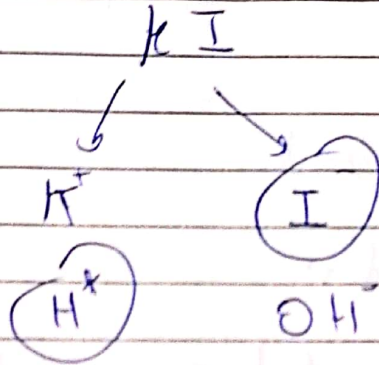 KI
K⁺ I⁻
H⁺ OH⁻